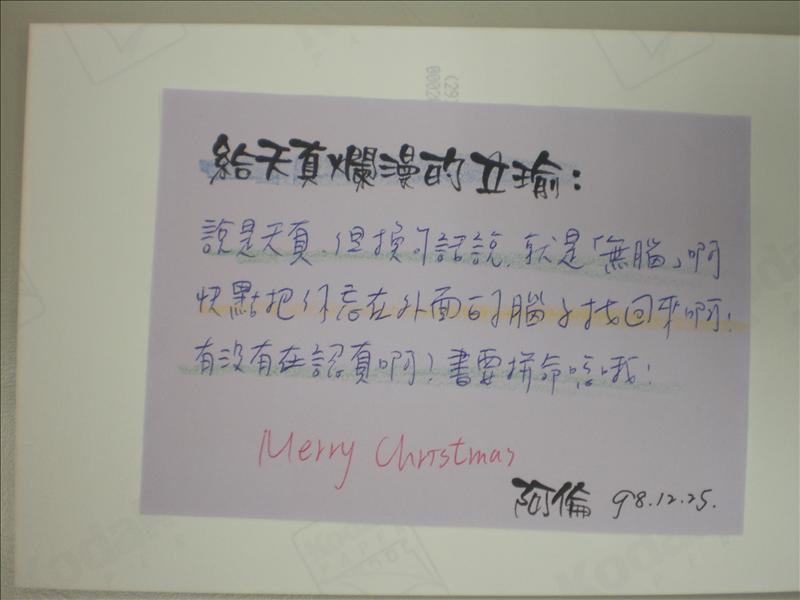 給天真爛漫的立瑜：
說是天真，但換句話說，就是「無腦」啊
快點把你忘在外面的腦子找回來啊！
有沒有在認真啊！書要拼命唸哦！
Merry Christmas
阿倫 98.12.25.
Kodak